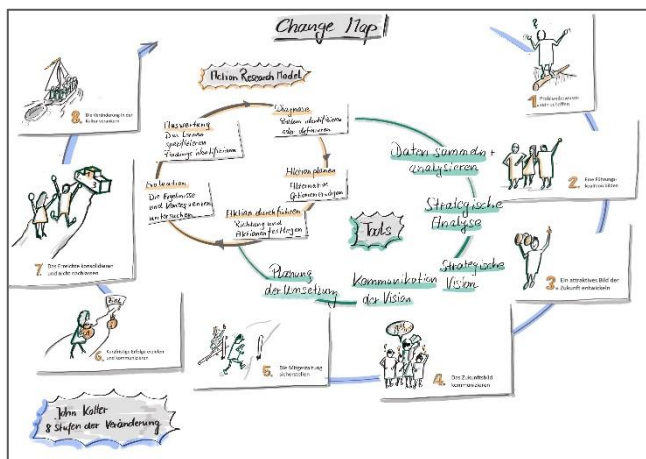 Change Map
Action Research Model
Diagnose
Problem identifizieren
oder definieren
Aktion planen
Alternative
Aktionen erwägen
Aktion durchführen
Richtung und
Aktionen festlegen
Evaluation
Die Ergebnisse
und Konsequenzen
untersuchen
Auswertung
Das Lernen
spezifizieren
Findings identifizieren
Tools
Daten sammeln +
analysieren
Strategische
Analyse
Strategische
Vision
Kommunikation
der Vision
Planung
der Umsetzung
1.
2.
Eine Führungs-
koalition bilden
3.
Ein attraktives Bild der
Zukunft entwickeln
4.
Das Zukunftsbild
kommunizieren
5.
Die Mitgestaltung
sicherstellen
6.
Kurzfristige Erfolge
und kommunizieren
Ziel
7.
Das Erreichte konsolidieren
und nicht nachlassen
8.
Die Veränderung in der
Kultur verankern
John Kotter
8 Stufen der Veränderung